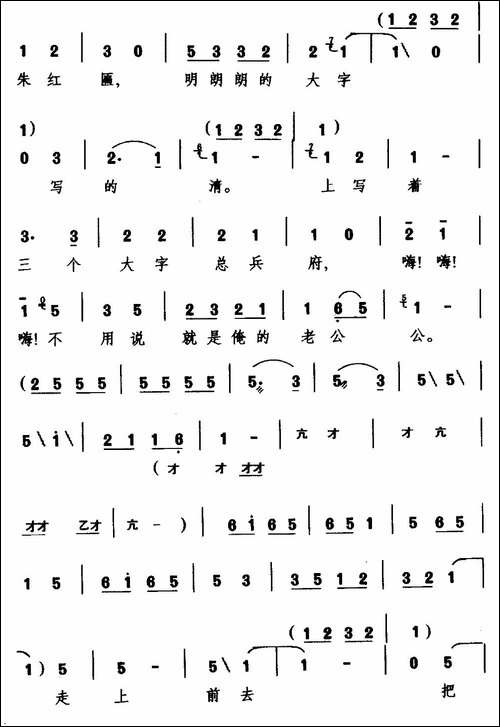 (1 2 3 2
1 2 | 3 0 | 5 3 3 2 | 2 1 | 1\ 0 |
朱 红 匾, 明 朗 朗 的 大 字
1) (1 2 3 2 | 1)
0 3 | 2· 1 | 1 - | 1 2 | 1 - |
写 的 清。 上 写 着
3· 3 | 2 2 | 2 1 | 1 0 | 2 1 |
三 个 大 字 总 兵 府, 嗨! 嗨!
1 5 | 3 5 | 2 3 2 1 | 1 6 5 | 1 - |
嗨! 不 用 说 就 是 俺 的 老 公 公。
(2 5 5 5 | 5 5 5 5 | 5· 3 | 5· 3 | 5\ 5\ |
5\ i\ | 2 1 1 6 | 1 - | 亢 才 | 才 亢 |
(才 才 才才
才才 乙才 | 亢 - ) | 6 i 6 5 | 6 5 1 | 5 6 5 |
1 5 | 6 i 6 5 | 5 3 | 3 5 1 2 | 3 2 1 |
(1 2 3 2 | 1)
1) 5 | 5 - | 5\ 1 | 1 - | 0 5 |
走 上 前 去 把